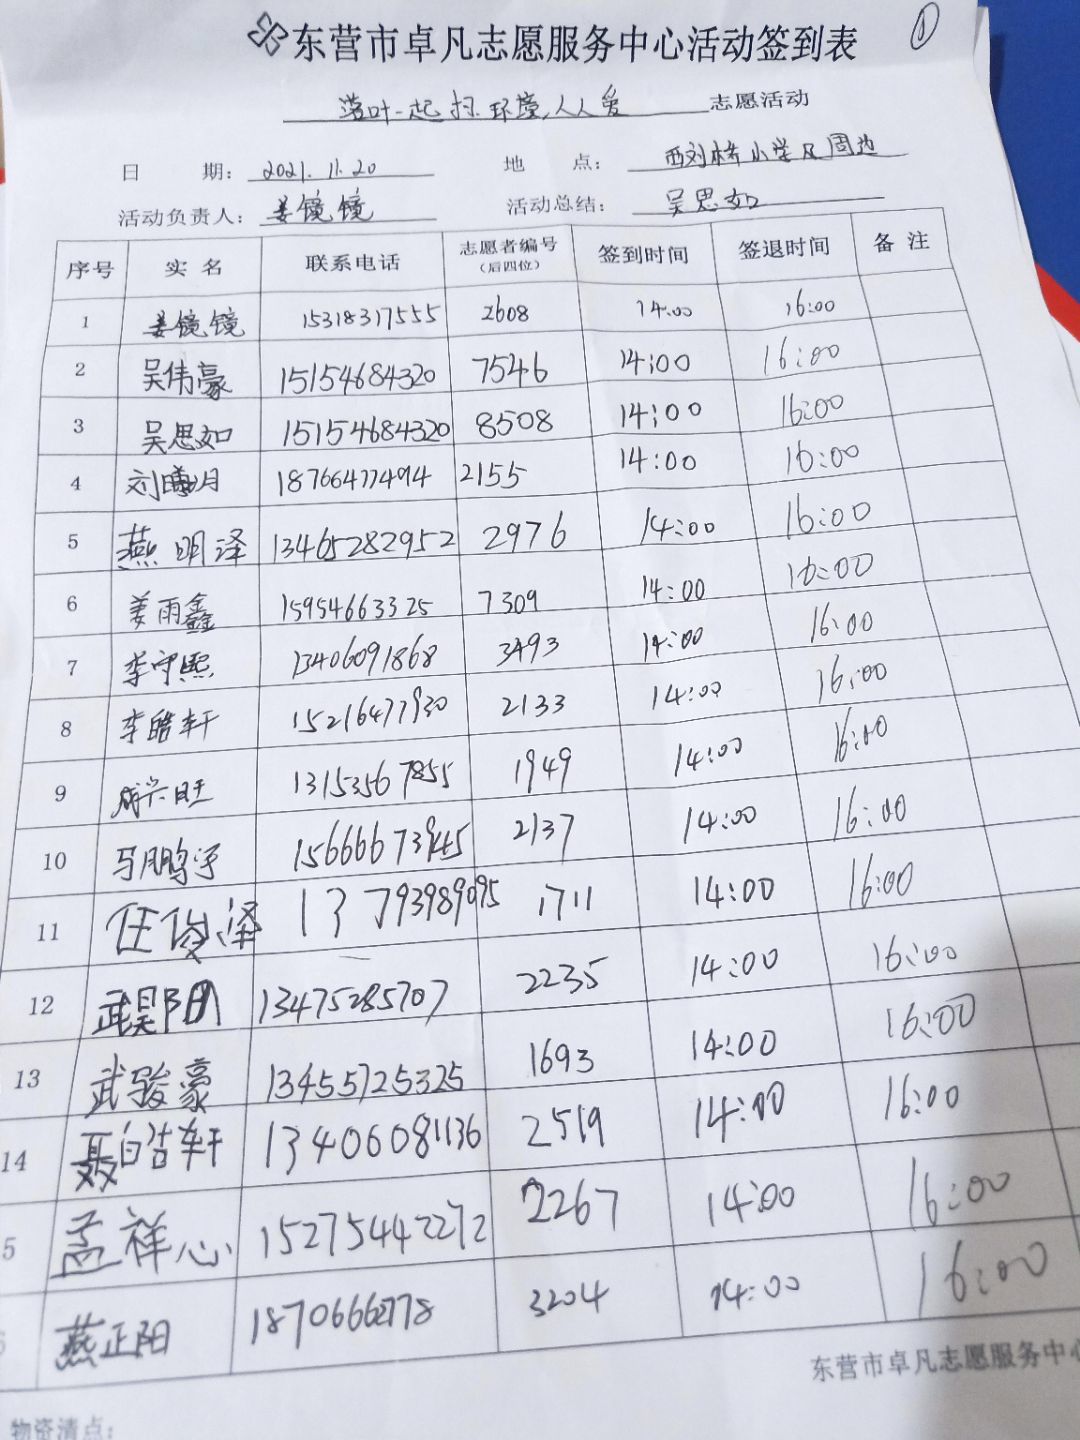 东营市卓凡志愿服务中心活动签到表 ①
落叶一起扫.环境,人人爱 志愿活动
日 期: 2021.11.20 地 点: 西刘桥小学及周边
活动负责人: 姜镜镜 活动总结: 吴思如
序号 实名 联系电话 志愿者编号(后四位) 签到时间 签退时间 备注
1 姜镜镜 15318317555 2608 14:00 16:00
2 吴伟豪 15154684320 7546 14:00 16:00
3 吴思如 15154684320 8508 14:00 16:00
4 刘 月 18766477494 2155 14:00 16:00
5 燕明泽 13465282952 2976 14:00 16:00
6 姜雨鑫 15954663325 7309 14:00 16:00
7 李守熙 13406091868 3493 14:00 16:00
8 李皓轩 15216477930 2133 14:00 16:00
9 兴旺 13153567855 1949 14:00 16:00
10 马鹏 15666673945 2137 14:00 16:00
11 任俊泽 13793989095 1711 14:00 16:00
12 武昊阳 13475285707 2235 14:00 16:00
13 武骏豪 13455725325 1693 14:00 16:00
14 聂皓轩 13406081136 2519 14:00 16:00
5 孟祥心 15275442272 2267 14:00 16:00
燕正阳 3204 14:00 16:00
东营市卓凡志愿服务中心
物资清点: